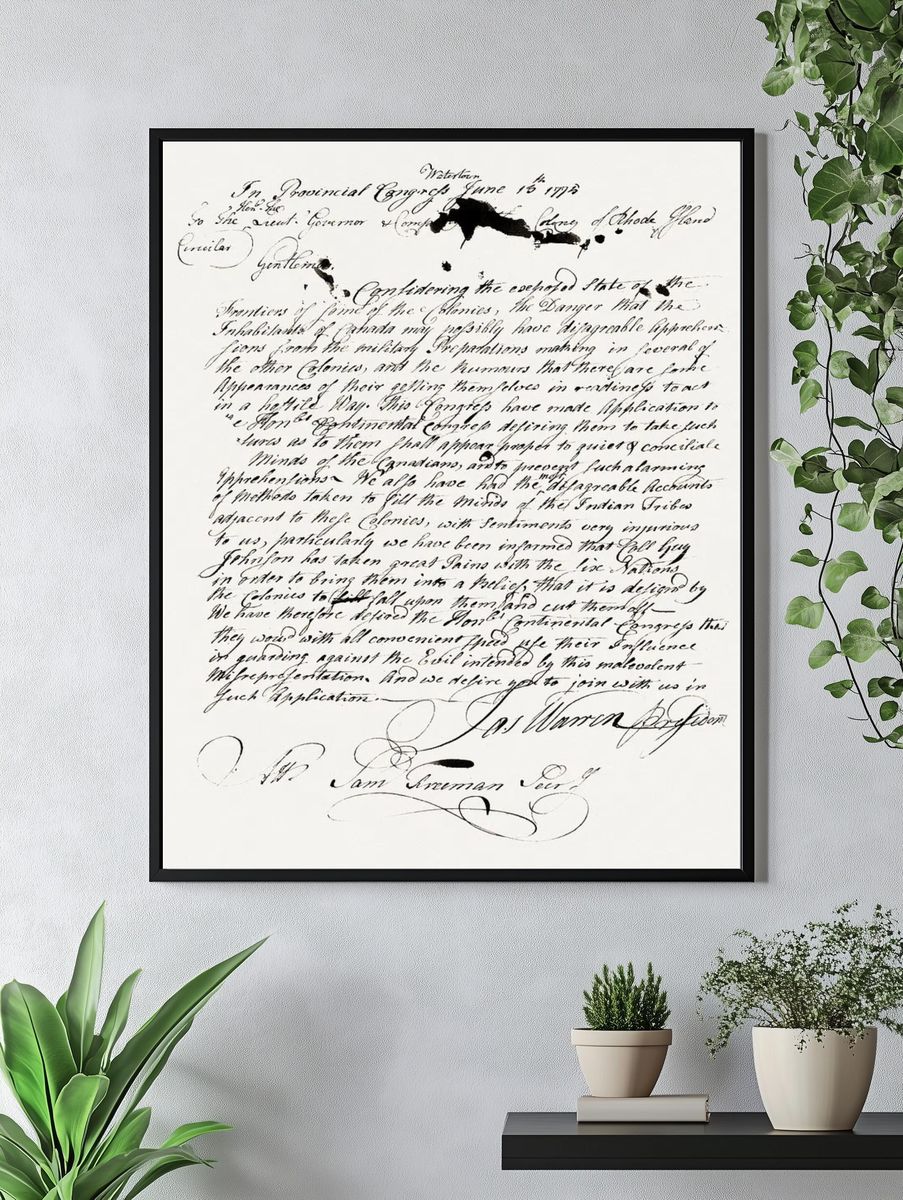 Watertown
In Provincial Congress June 15th 1775
Honble the
To the Lieut. Governor & Comp the Colony of Rhode Island
Circular
Gentlemen
Considering the exposed State of the
Frontiers of some of the Colonies, the Danger that the
Inhabitants of Canada may possibly have disagreable Apprehen
sions from the military Preparations making in several of
the other Colonies, and the Rumours that there are some
Appearances of their getting themselves in readiness to act
in a hostile Way. This Congress have made Application to
e Honble Continental Congress desiring them to take such
sures as to them shall appear proper to quiet & conciliate
Minds of the Canadians, and to prevent such alarming
Apprehensions. We also have had the most disagreable Accounts
of Methods taken to fill the Minds of the Indian Tribes
adjacent to these Colonies, with Sentiments very injurious
to us, particularly we have been informed that Coll Guy
Johnson has taken great Pains with the Six Nations
in order to bring them into a Belief, that it is designd by
the Colonies to fall upon them and cut them off
We have therefore desired the Honble Continental Congress that
they woud with all convenient Speed use their Influence
in guarding against the Evil intended by this malevolent
Misrepresentation. And we desire you to join with us in
Such Application.
Jas Warren President
Att
Saml Freeman Secry